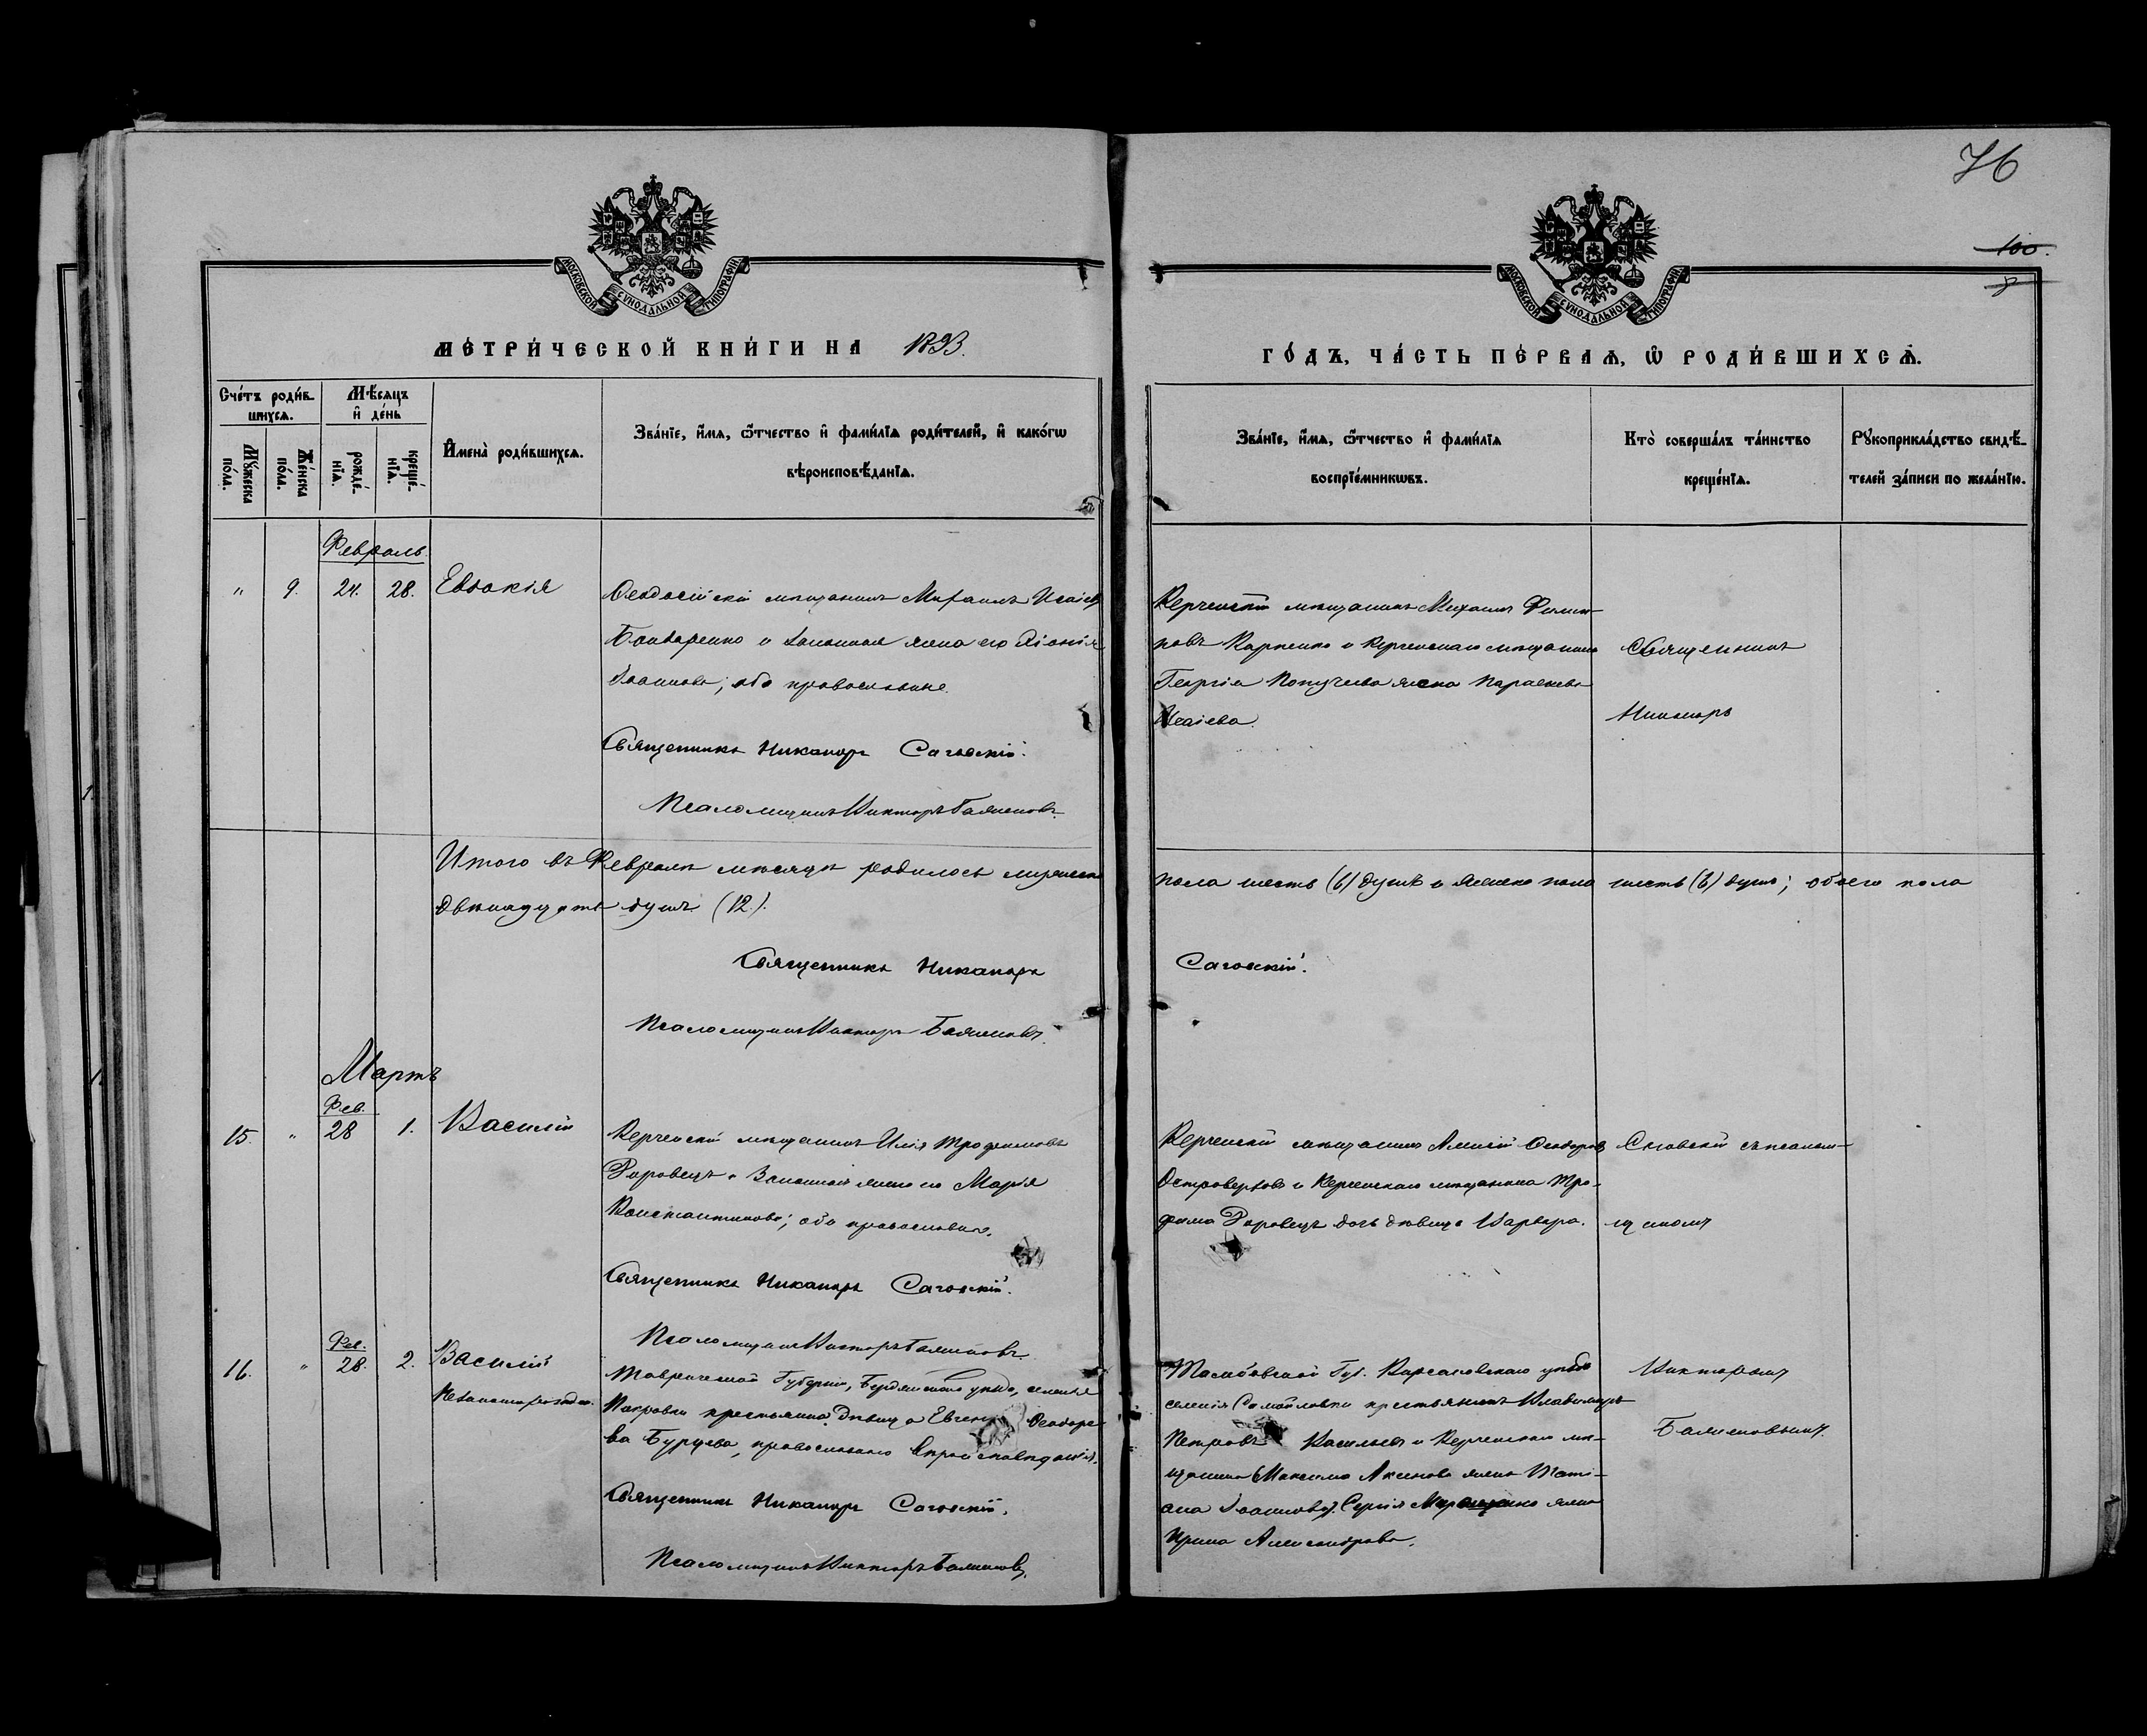 76
100.
МОСКОВСКОЙ СУНОДАЛЬНОЙ ТИПОГРАФИИ
МОСКОВСКОЙ СУНОДАЛЬНОЙ ТИПОГРАФИИ
МЕТРИ́ЧЕСКОЙ КНИ́ГИ НА 1893.
ГО́ДЪ, ЧА́СТЬ ПЕ́РВАѦ, Ѿ РОДИ́ВШИХСѦ.
Сче́тъ роди́в-
шихсѧ.
Мѣ́сѧцъ
и҆ де́нь
Мꙋ́жеска
по́ла.
Же́нска
по́ла.
рожде́-
нїѧ.
креще́-
нїѧ.
И҆мена̀ роди́вшихсѧ.
Зва́нїе, и҆́мѧ, ѻ҆́тчество и҆ фами́лїѧ роди́телей, и҆ како́гѡ
вѣроисповѣ́данїѧ.
Зва́нїе, и҆́мѧ, ѻ҆́тчество и҆ фами́лїѧ
воспрїе́мникѡвъ.
Кто̀ соверша́лъ та́инство
креще́нїѧ.
Рꙋкоприкла́дство свидѣ́-
телей за́писи по жела́нїю.
Февраль
" 9. 24. 28. Евдокія
Ѳеодосійскій мѣщанинъ Михаилъ Исаіевъ
Бондаренко и законная жена его
Іоаннова; оба православные.
Священникъ Никаноръ Саговскій.
Псаломщикъ Викторъ Баженовъ.
Керченскій мѣщанинъ Михаилъ Филип-
повъ Карпенко и Керченскаго мѣщанина
Георгія жена Параскева
Исаіева.
Священникъ
Никаноръ
Итого въ Февралѣ мѣсяцѣ родилось мужеска
пола шесть (6) душъ и женска пола шесть (6) душъ; обоего пола
двѣнадцать душъ (12).
Священникъ Никаноръ
Саговскій.
Псаломщикъ Викторъ Баженовъ.
Мартъ
Фев.
15. " 28 1. Василій
Керченскій мѣщанинъ Илія Трофимовъ
и законная жена его Марія
Константинова; оба православные.
Священникъ Никаноръ Саговскій.
Псаломщикъ Викторъ Баженовъ.
Керченскій мѣщанинъ Алексій Ѳеодоровъ
Островерховъ и Керченскаго мѣщанина Тро-
фима дочь дѣвица Варвара.
Саговскій съ псалом-
щикомъ
Фев.
16. " 28. 2. Василій
Незаконнорожден.
Таврической Губерніи, Бердянскаго уѣзда, селенія
Покровки крестьянка дѣвица Евгенія Ѳеодоро-
ва Бурцева, православнаго вѣроисповѣданія.
Священникъ Никаноръ Саговскій.
Псаломщикъ Викторъ Баженовъ.
Тамбовской Губ. Кирсановскаго уѣзда
селенія Самойловки крестьянинъ Владимиръ
Петровъ Васильевъ и Керченскаго мѣ-
щанина Максима Аксенова жена Тати-
ана Іоаннова. Сергія жена
Ирина Александрова.
Викторомъ
Баженовымъ.